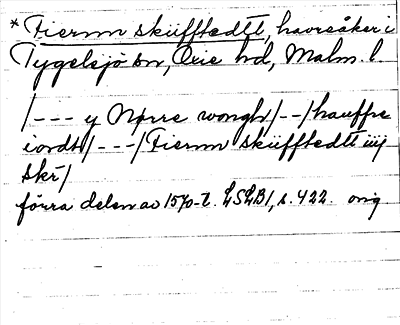 * Fiernn skiifftedtt, havreåker i
Tygelsjö sn, Oxie hd, Malm. l.
/--- y Nørre wongh/--/hauffre
iordt/---/Fiernn skiifftedtt iiij
skr/
förra delen av 1570-t. LSLB1, s. 422. orig